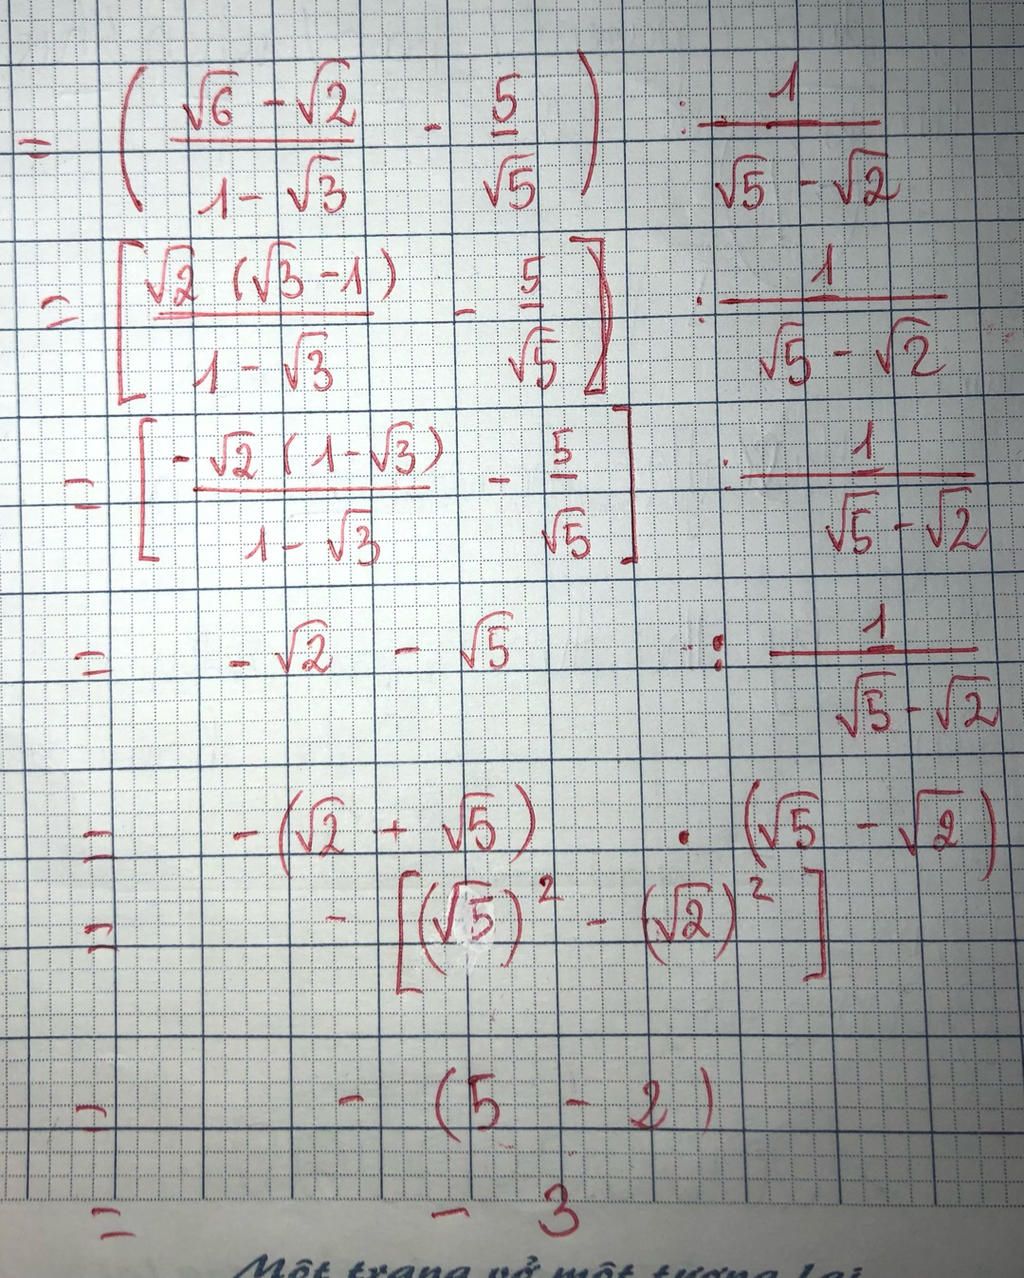 = ( (√6 - √2)/(1 - √3) - 5/√5 ) : 1/(√5 - √2)
= [ (√2 (√3 - 1))/(1 - √3) - 5/√5 ] : 1/(√5 - √2)
= [ (-√2 (1 - √3))/(1 - √3) - 5/√5 ] : 1/(√5 - √2)
= - √2 - √5 : 1/(√5 - √2)
= - (√2 + √5) . (√5 - √2)
= - [(√5)² - (√2)²]
= - (5 - 2)
= - 3
Một trang vở một tương lai